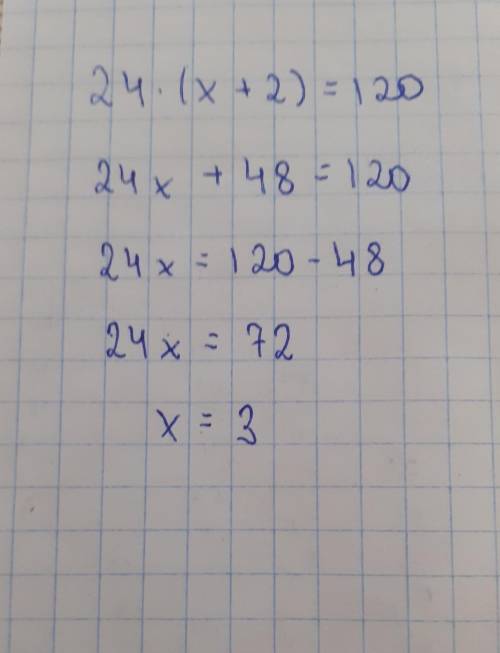 24 · (x + 2) = 120
24x + 48 = 120
24x = 120 - 48
24x = 72
x = 3